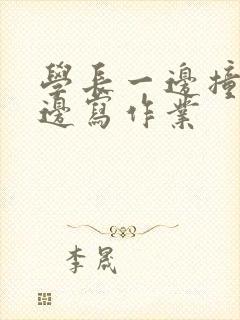 學長一邊撞
邊寫作業
李晟